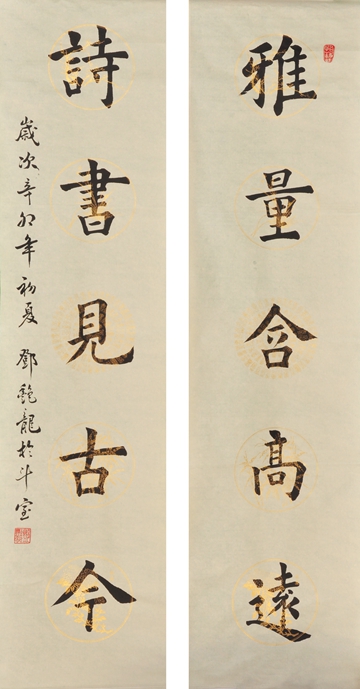 雅量含高遠
詩書見古今
歲次辛卯年初夏 鄧乾龍於斗室